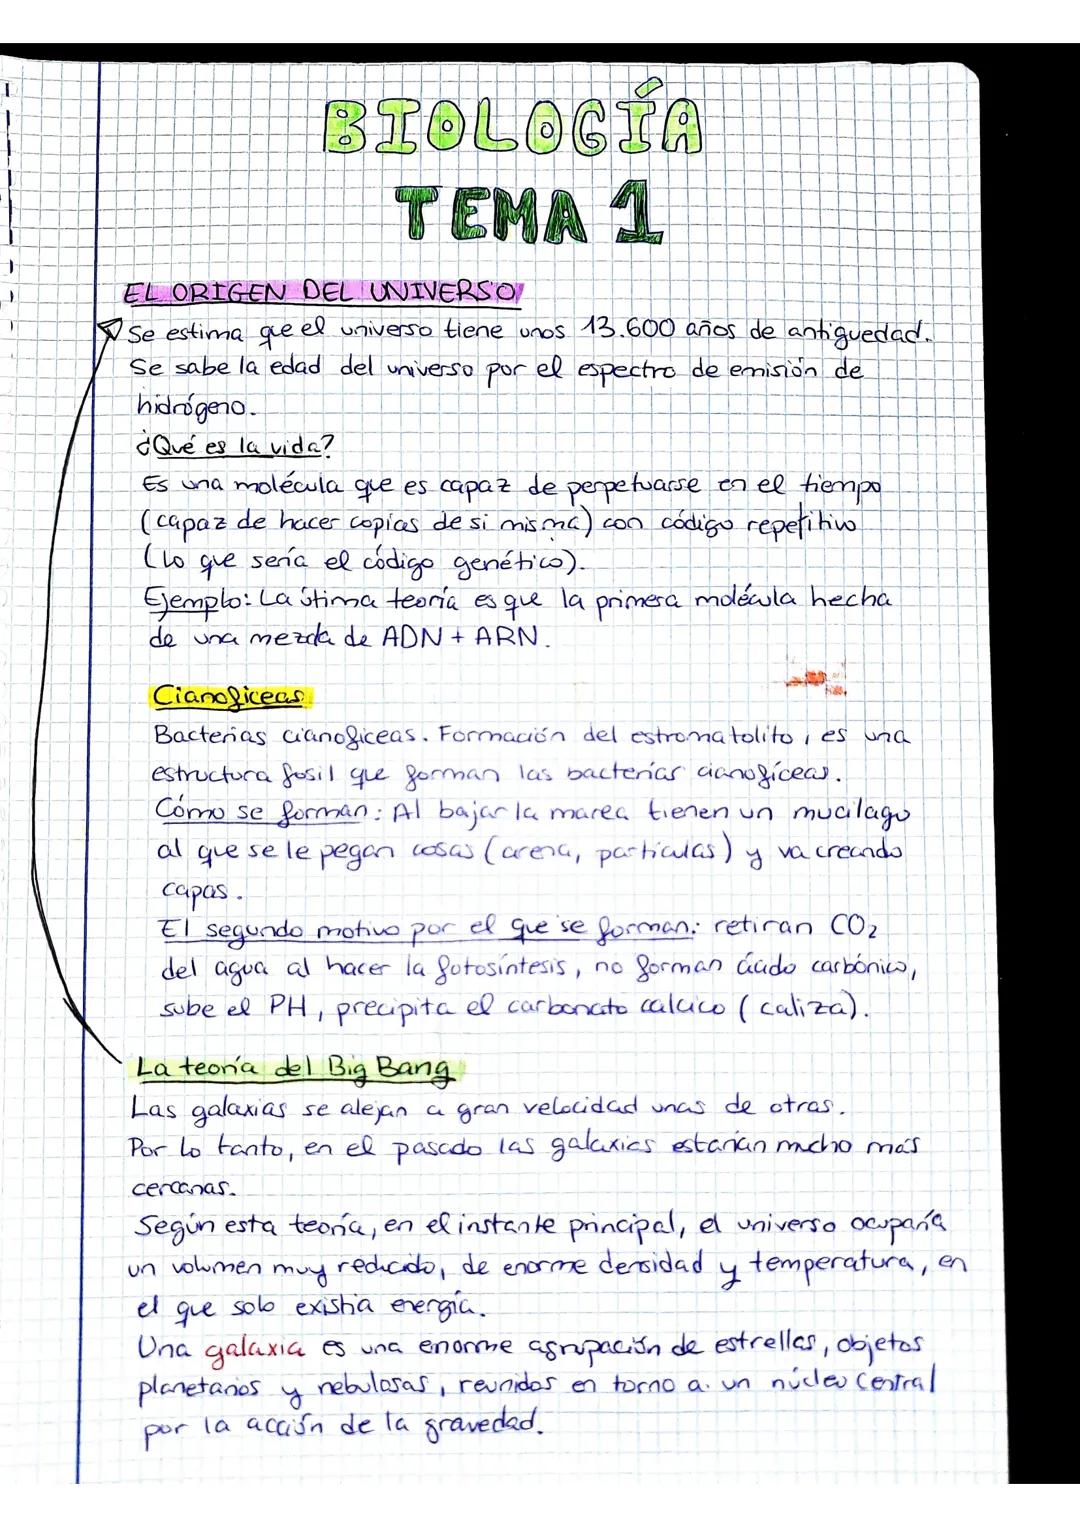 BIOLOGÍA
TEMA 1
EL ORIGEN DEL UNIVERSO
Se estima que el universo tiene unos 13.600 años de antiguedad.
Se sabe la edad del universo por el espectro de emisión de
hidrógeno.
¿Qué es la vida?
Es una molécula que es capaz de perpetuarse en el tiempo
(capaz de hacer copias de si misma) con código repetitivo
(lo que sería el código genético).
Ejemplo: La útima teoría es que la primera molécula hecha
de una mezcla de ADN + ARN.
Cianofíceas
Bacterias cianofíceas. Formación del estromatolito, es una
estructura fosil que forman las bacterias cianofíceas.
Cómo se forman: Al bajar la marea tienen un mucilago
al que se le pegan cosas (arena, partículas) y va creando
capas.
El segundo motivo por el que se forman: retiran CO2
del agua al hacer la fotosíntesis, no forman ácido carbónico,
sube el PH, precipita el carbonato calcico (caliza).
La teoría del Big Bang
Las galaxias se alejan a gran velocidad unas de otras.
Por lo tanto, en el pasado las galaxias estarían mucho más
cercanas.
Según esta teoría, en el instante principal, el universo ocuparía
un volumen muy reducido, de enorme densidad y temperatura, en
el que solo existia energía.
Una galaxia es una enorme agrupación de estrellas, objetos
planetarios y nebulosas, reunidos en torno a un núcleo central
por la acción de la gravedad.